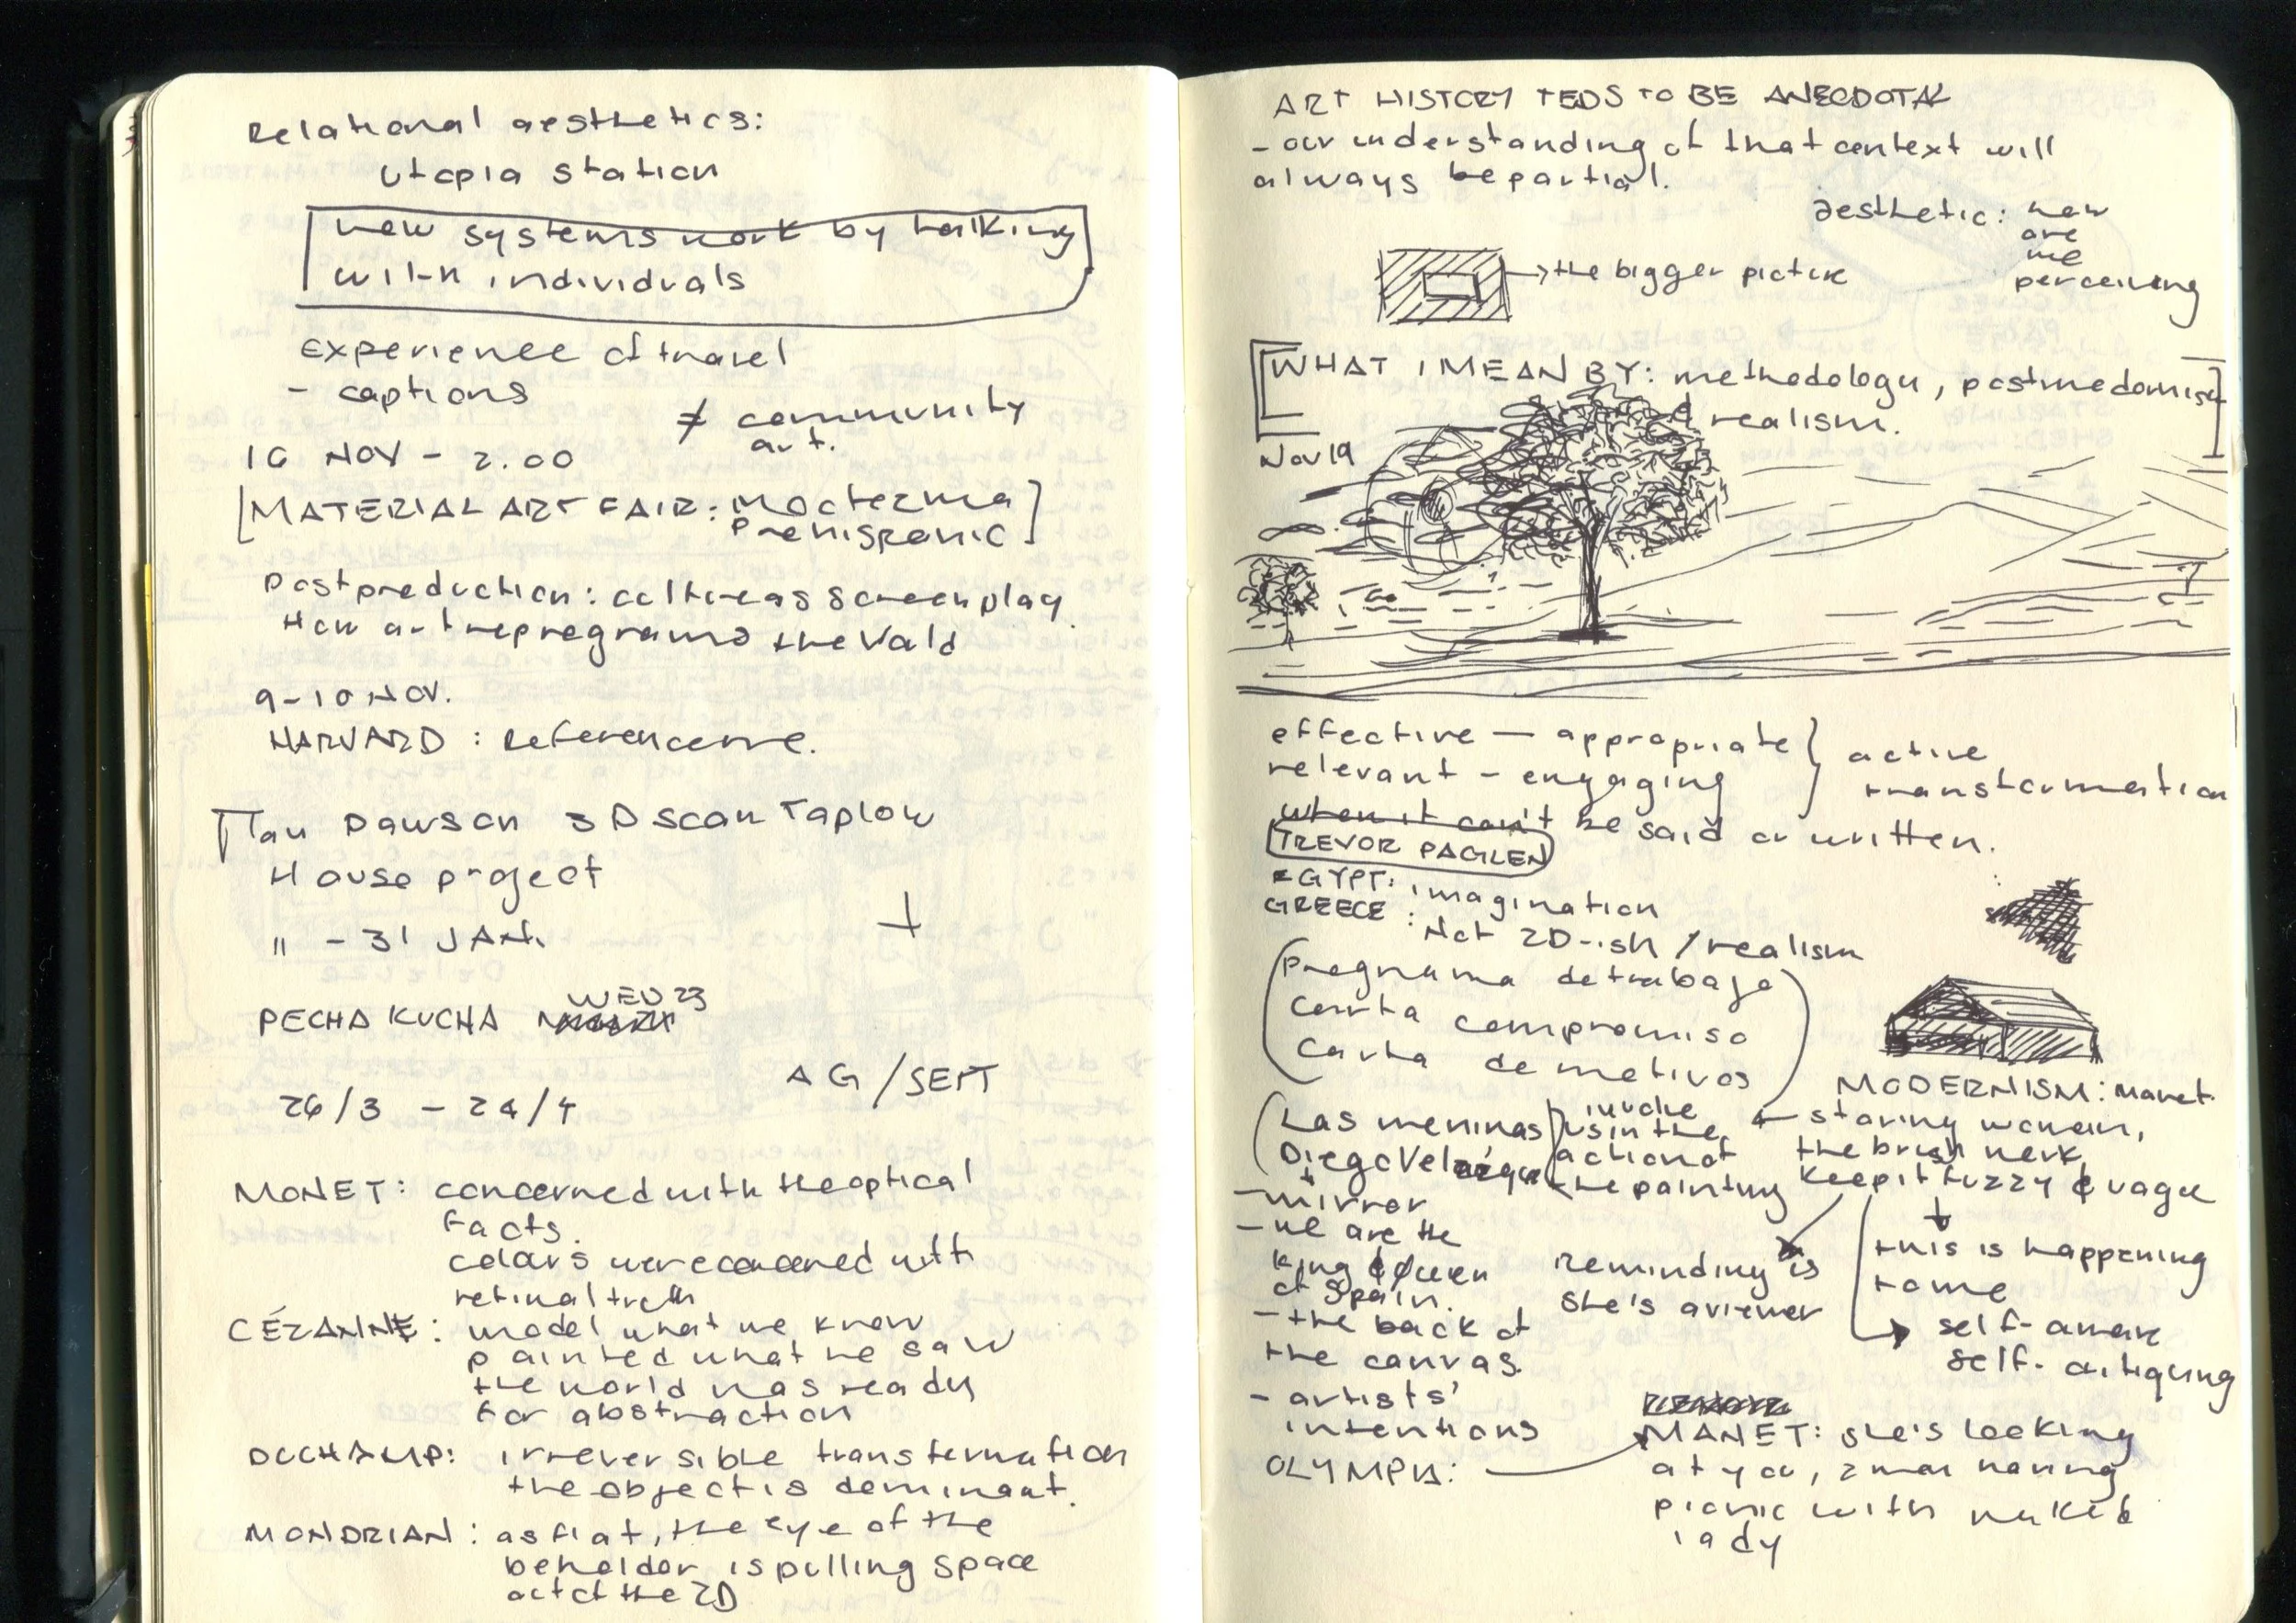 Relational aesthetics:
utopia station
new systems work by talking
with individuals
experience of travel
- captions
≠ community
art.
16 NOV - 2.00
[MATERIAL ART FAIR: Moctezuma
Prehispanic]
Postproduction: culture as screenplay
How art reprograms the World
9-10 NOV.
HARVARD : Reference
Ian Dawson 3D scan Taplow
House project
" - 31 JAN.
PECHA KUCHA WED 23
AG/SEPT
26/3 - 24/4
MONET: concerned with the optical
facts.
colours were concerned with
retinal truth
CÉZANNE: model what we know
painted what he saw
the world was ready
for abstraction
DUCHAMP: irreversible transformation
the object is dominant.
MONDRIAN: as flat, the eye of the
beholder is pulling space
out of the 2D
ART HISTORY TEDS TO BE ANECDOTAL
- our understanding of that context will
always be partial.
aesthetic: how
are
we
perceiving
→ the bigger picture
[WHAT I MEAN BY: methodology, postmodernism
realism.]
Nov 19
effective — appropriate } active
relevant - engaging } transformation
when it can't be said or written.
TREVOR PAGLEN
EGYPT: imagination
GREECE : Not 2D-ish / realism
(Programa de trabajo
Carta compromiso
Carta de motivos)
MODERNISM: Manet
(Las meninas) invoke ← staring woman,
Diego Velázquez us in the the brush work
action of keep it fuzzy & vague
the painting
- mirror
- we are the
king & Queen
of Spain.
- the back of
the canvas.
- artists'
intentions
reminding is
she's a viewer
this is happening
to me
→ self-aware
self-critiquing
OLYMPIA: → MANET: she's looking
at you, 2 man having
picnic with naked
lady